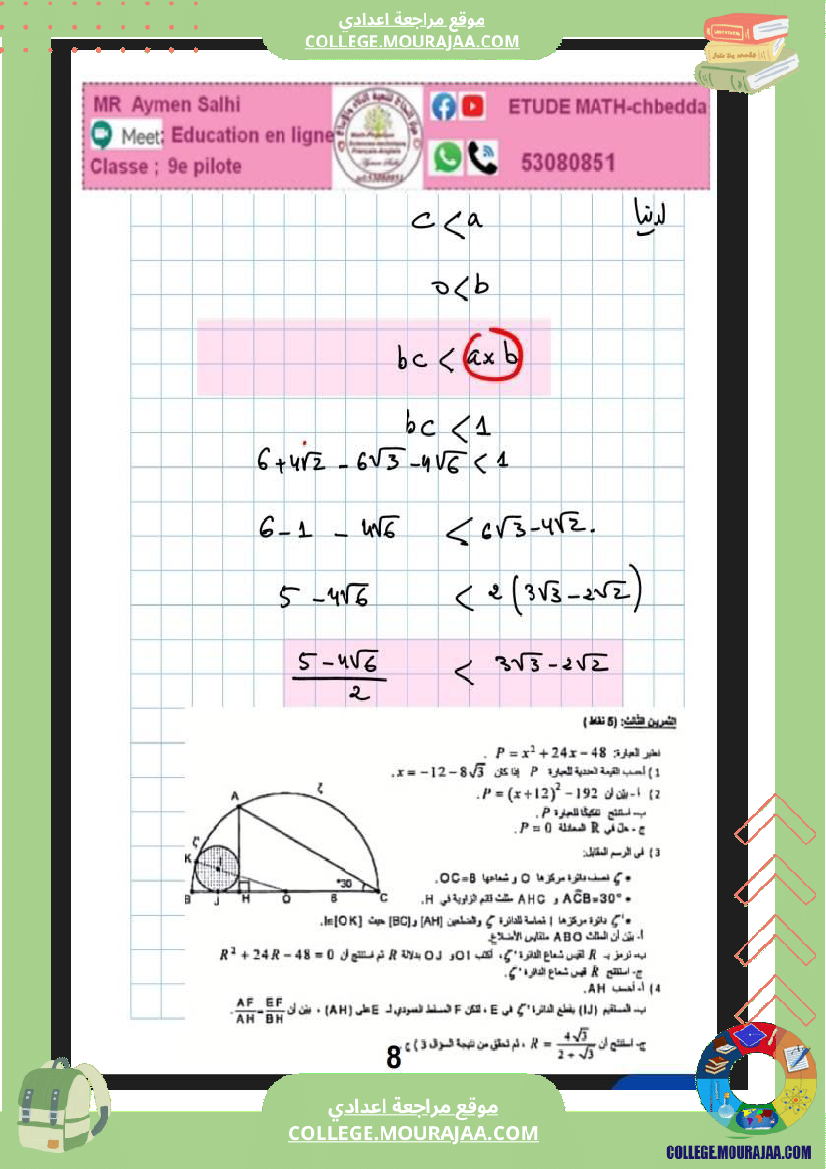 موقع مراجعة اعدادي
COLLEGE.MOURAJAA.COM
MR Aymen Salhi
Meet: Education en ligne
Classe ; 9e pilote
ETUDE MATH-chbedda
53080851
لدينا
c < a
0 < b
bc < a × b
bc < 1
6 + 4√2 - 6√3 - 4√6 < 1
6 - 1 - 4√6 < 6√3 - 4√2.
5 - 4√6 < 2 (3√3 - 2√2)
(5 - 4√6)/2 < 3√3 - 2√2
التمرين الثالث: (5 نقط)
نعتبر العبارة: P = x² + 24x - 48 .
1) أحسب القيمة العددية للعبارة P إذا كان x = -12 - 8√3.
2) أ- بيّن أن P = (x+12)² - 192.
ب- استنتج تفكيكا للعبارة P.
ج- حل في R المعادلة P = 0.
3) في الرسم المقابل:
• ζ نصف دائرة مركزها O و شعاعها OC=6.
• AĈB=30° و AHC مثلث قائم الزاوية في H.
• 'ζ دائرة مركزها I مماسة للدائرة ζ والضلعين [AH] و [BC] حيث I∈[OK].
أ- بيّن أن المثلث ABO متقايس الأضلاع.
ب- نرمز بـ R لقيس شعاع الدائرة 'ζ، أكتب OI و OJ بدلالة R ثم استنتج أن R² + 24R - 48 = 0
ج- استنتج R قيس شعاع الدائرة 'ζ.
4) أ- أحسب AH.
ب- المستقيم (IJ) يقطع الدائرة 'ζ في E، لتكن F المسقط العمودي لـ E على (AH)، بيّن أن AF/AH = EF/BH.
ج- استنتج أن R = 4√3/(2+√3)، ثم تحقق من نتيجة السؤال 3) ج.
A
ζ
ζ'
K
I
30°
B
J
H
O
6
C
8
موقع مراجعة اعدادي
COLLEGE.MOURAJAA.COM
COLLEGE.MOURAJAA.COM